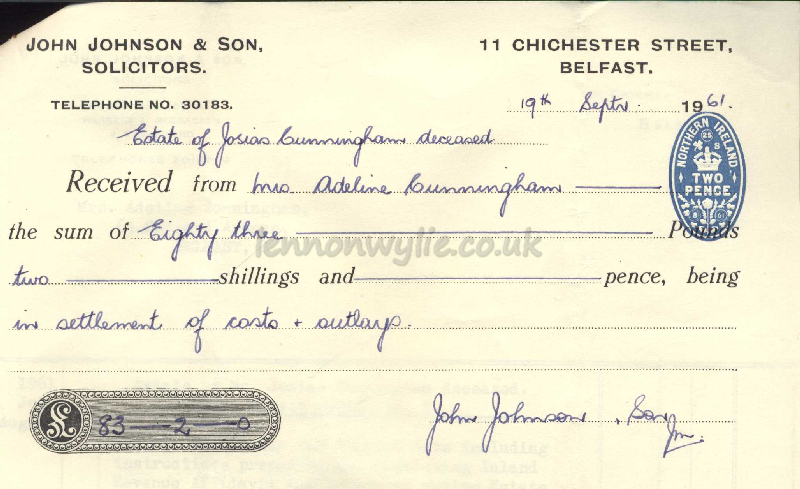 JOHN JOHNSON & SON,
SOLICITORS.
TELEPHONE NO. 30183.
11 CHICHESTER STREET,
BELFAST.
19th Septr. 1961.
Estate of Josias Cunningham deceased.
NORTHERN IRELAND
TWO
PENCE
Received from Mrs Adeline Cunningham
the sum of Eighty three Pounds
lennonwylie.co.uk
two shillings and pence, being
in settlement of costs + outlays.
£ 83—2—0
John Johnson + Son